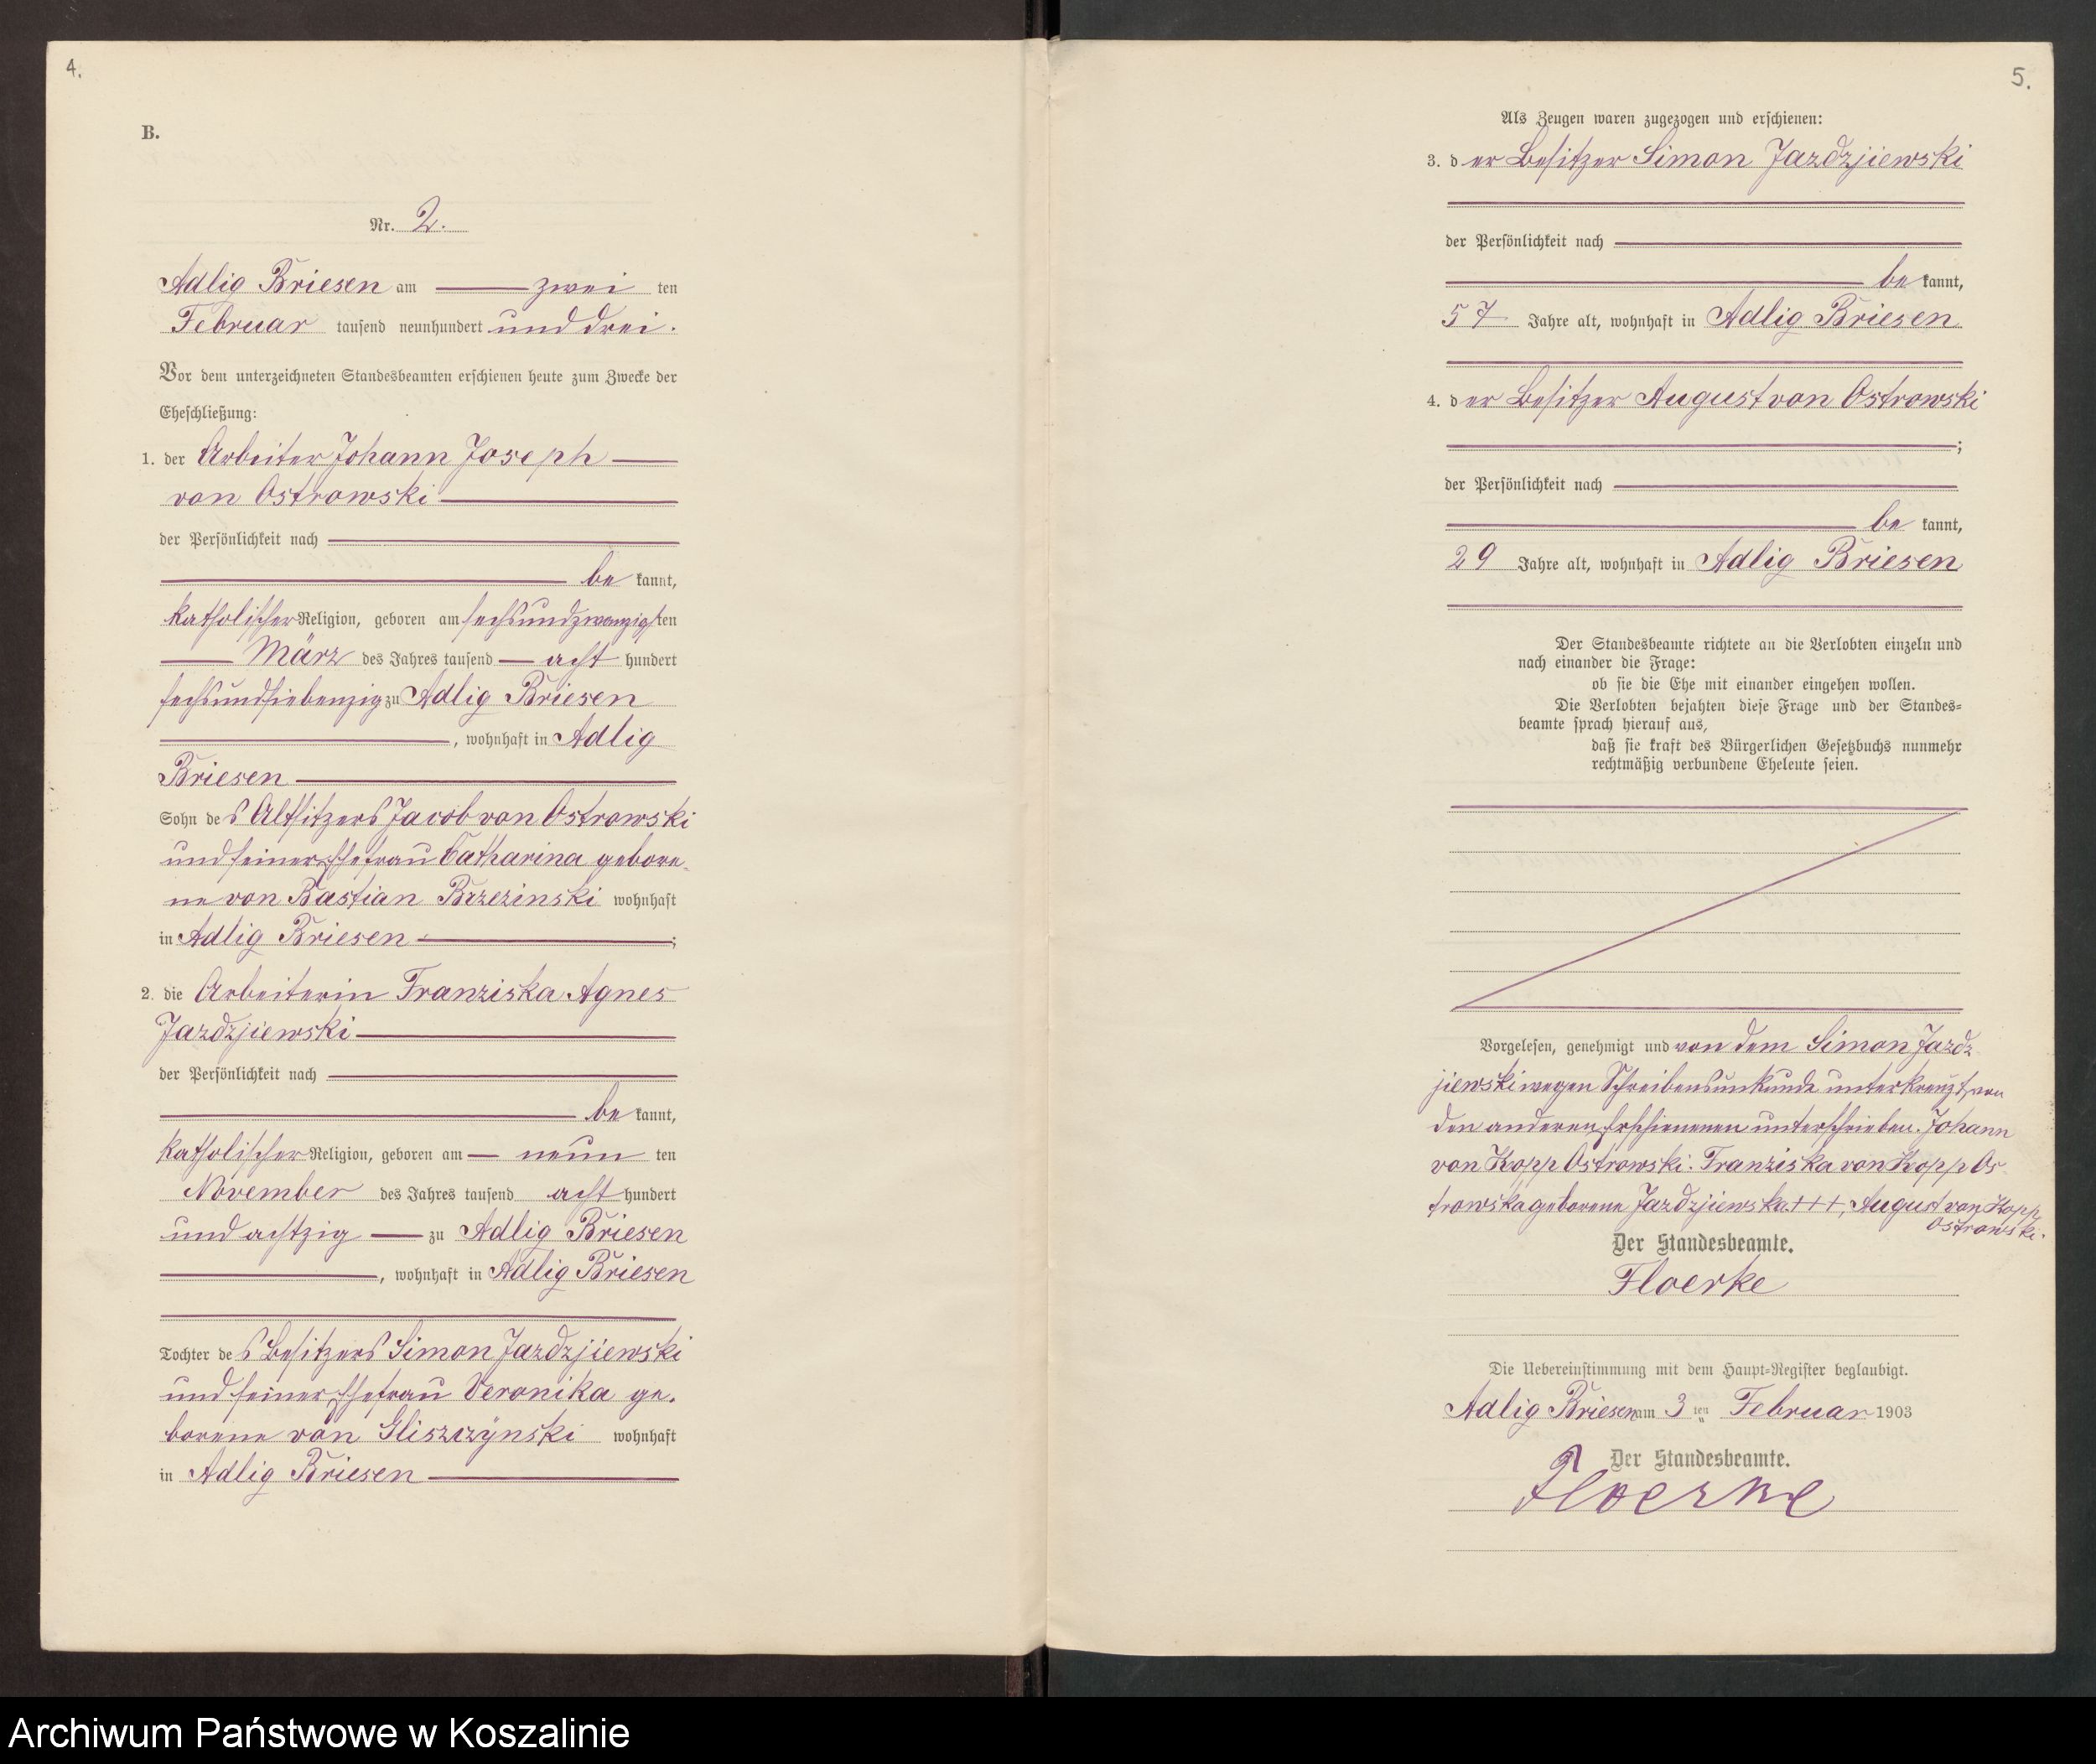 4.
B.
Nr. 2.
Adlig Briesen am zwei ten
Februar tausend neunhundert und drei.
Vor dem unterzeichneten Standesbeamten erschienen heute zum Zwecke der
Eheschließung:
1. der Arbeiter Johann Joseph
von Ostrowski
der Persönlichkeit nach
be kannt,
katholischer Religion, geboren am sechsundzwanzigsten
März des Jahres tausend acht hundert
sechsundsiebenzig zu Adlig Briesen
, wohnhaft in Adlig
Briesen
Sohn des Altsitzers Jacob von Ostrowski
und seiner Ehefrau Catharina gebore-
ne von Bastian Brzezinski wohnhaft
in Adlig Briesen ;
2. die Arbeiterin Franziska Agnes
Jazdzjiewski
der Persönlichkeit nach
be kannt,
katholischer Religion, geboren am neun ten
November des Jahres tausend acht hundert
und achtzig zu Adlig Briesen
, wohnhaft in Adlig Briesen
Tochter des Besitzers Simon Jazdzjiewski
und seiner Ehefrau Veronika ge-
borene von Gliszczynski wohnhaft
in Adlig Briesen
5.
Als Zeugen waren zugezogen und erschienen:
3. der Besitzer Simon Jazdzjiewski
der Persönlichkeit nach
be kannt,
57 Jahre alt, wohnhaft in Adlig Briesen
4. der Besitzer August von Ostrowski
;
der Persönlichkeit nach
be kannt,
29 Jahre alt, wohnhaft in Adlig Briesen
Der Standesbeamte richtete an die Verlobten einzeln und
nach einander die Frage:
ob sie die Ehe mit einander eingehen wollen.
Die Verlobten bejahten diese Frage und der Standes-
beamte sprach hierauf aus,
daß sie kraft des Bürgerlichen Gesetzbuchs nunmehr
rechtmäßig verbundene Eheleute seien.
Vorgelesen, genehmigt und von dem Simon Jazdz
jiewski wegen Schreibensunkunde unterkreuzt, von
den anderen Erschienenen unterschrieben. Johann
von Kopp Ostrowski. Franziska von Kopp Os
trowska geborene Jazdzjiewska +++, August von Kopp
Ostrowski.
Der Standesbeamte.
Floerke
Die Uebereinstimmung mit dem Haupt-Register beglaubigt.
Adlig Briesen am 3 ten Februar 1903
Der Standesbeamte.
Floerke
Archiwum Państwowe w Koszalinie